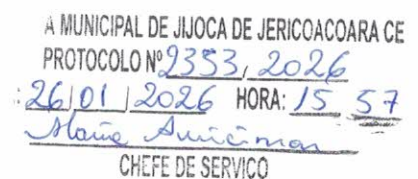 A MUNICIPAL DE JIJOCA DE JERICOACOARA CE
PROTOCOLO Nº 2353, 2026
: 26/01/2026 HORA: 15 57
CHEFE DE SERVICO